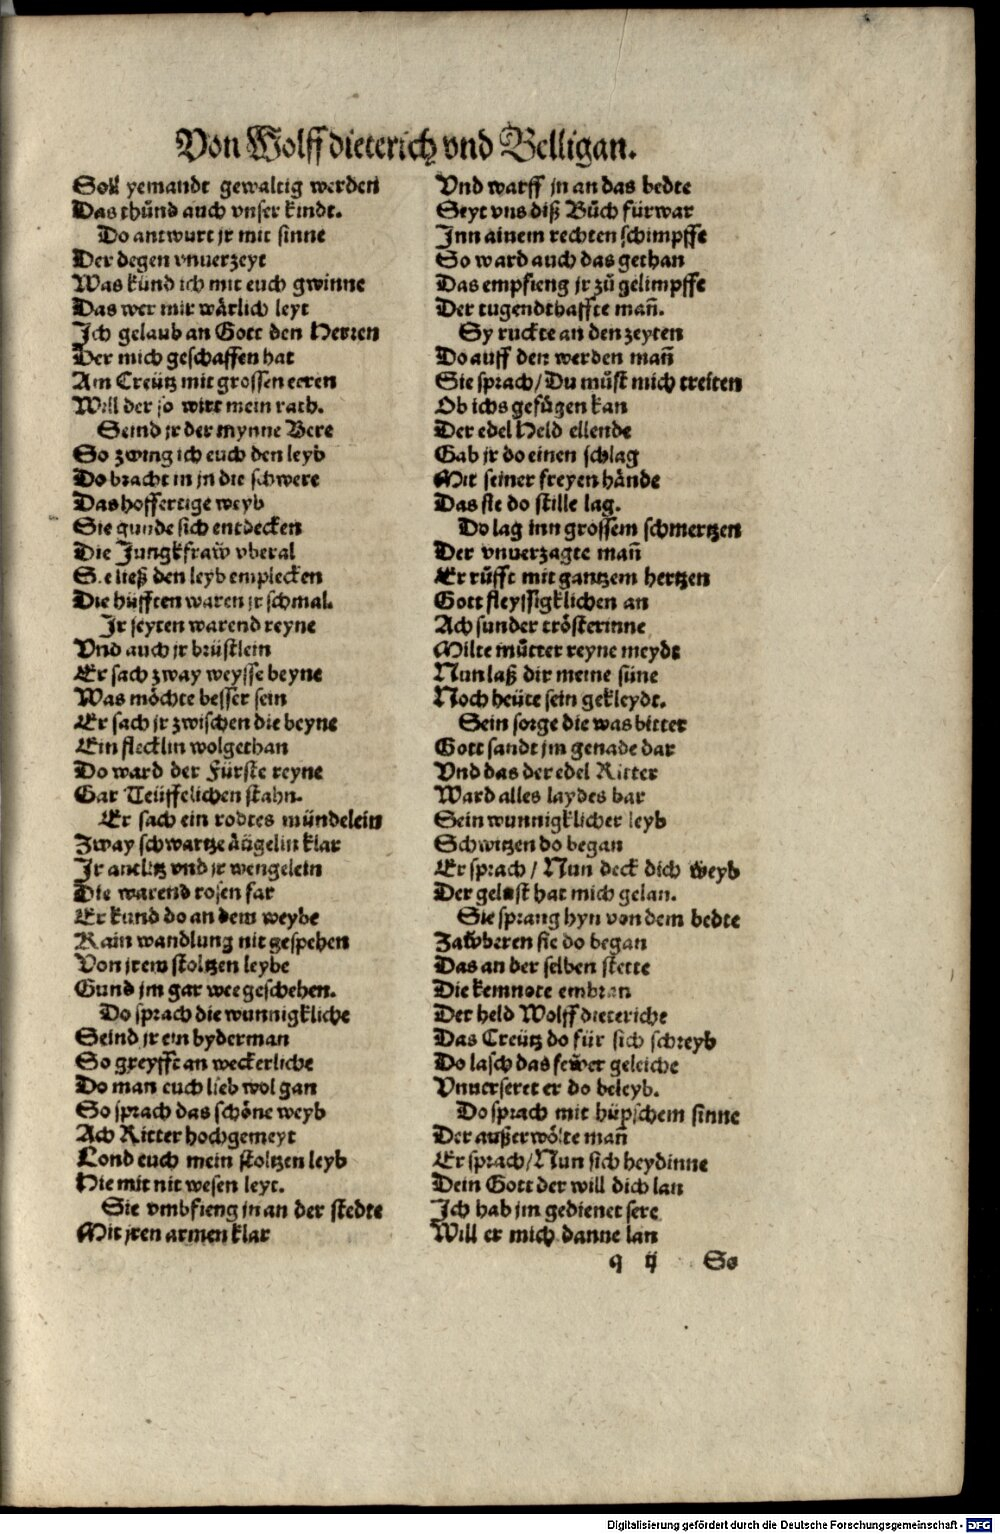 Von Wolffdieterich vnd Belligan.
Soll yemandt gewaltig werden
Das thůnd auch vnser kindt.
Do antwurt jr mit sinne
Der degen vnuerzeyt
Was künd ich mit euch gwinne
Das wer mir wärlich leyt
Ich gelaub an Gott den Herren
Der mich geschaffen hat
Am Creütz mit grossen eeren
Will der so wirt mein rath.
Seind jr der mynne Bere
So zwing ich euch den leyb
Do bracht in jn die schwere
Das hoffertige weyb
Sie gunde sich entdecken
Die Jungkfraw vberal
Sie ließ den leyb emplecken
Die hüfften waren jr schmal.
Jr seyten warend reyne
Vnd auch jr brüstlein
Er sach zway weysse beyne
Was möchte besser sein
Er sach jr zwischen die beyne
Ein flecklin wolgethan
Do ward der Fürste reyne
Gar Teüffelichen stahn.
Er sach ein rodtes mündelein
Zway schwartze äügelin klar
Jr anclitz vnd jr wengelein
Die warend rosen far
Er kund do an dem weybe
Kain wandlung nit gespehen
Von jrem stoltzen leybe
Gund jm gar wee geschehen.
Do sprach die wunnigkliche
Seind jr ein byderman
So greyfft an weckerliche
Do man euch lieb wol gan
So sprach das schöne weyb
Ach Ritter hochgemeyt
Lond euch mein stoltzen leyb
Hie mit nit wesen leyt.
Sie vmbfieng jn an der stedte
Mit jren armen klar
Vnd warff jn an das bedte
Seyt vns diß Bůch fürwar
Inn ainem rechten schimpffe
So ward auch das gethan
Das empfieng jr zů gelimpffe
Der tugendthaffte mañ.
Sy ruckte an den zeyten
Do auff den werden mañ
Sie sprach / Du můst mich treiten
Ob ichs gefügen kan
Der edel Held ellende
Gab jr do einen schlag
Mit seiner freyen hände
Das sie do stille lag.
Do lag inn grossem schmertzen
Der vnuerzagte mañ
Er růfft mit gantzem hertzen
Gott fleyssigklichen an
Ach sunder trösterinne
Milte můtter reyne meydt
Nun laß dir meine süne
Noch heüte sein gekleydt.
Sein sorge die was bitter
Gott sandt jm genade dar
Vnd das der edel Ritter
Ward alles laydes bar
Sein wunnigklicher leyb
Schwitzen do began
Er sprach / Nun deck dich weyb
Der gelust hat mich gelan.
Sie sprang hyn von dem bedte
Zawberen sie do began
Das an der selben stette
Die kemnote embran
Der held Wolffdieteriche
Das Creütz do für sich schreyb
Do lasch das fewer geleiche
Vnuerseret er do beleyb.
Do sprach mit hüpschem sinne
Der außerwölte mañ
Er sprach / Nun sich heydinne
Dein Gott der will dich lan
Ich hab jm gedienet sere
Will er mich danne lan
q ij So
Digitalisierung gefördert durch die Deutsche Forschungsgemeinschaft - DFG